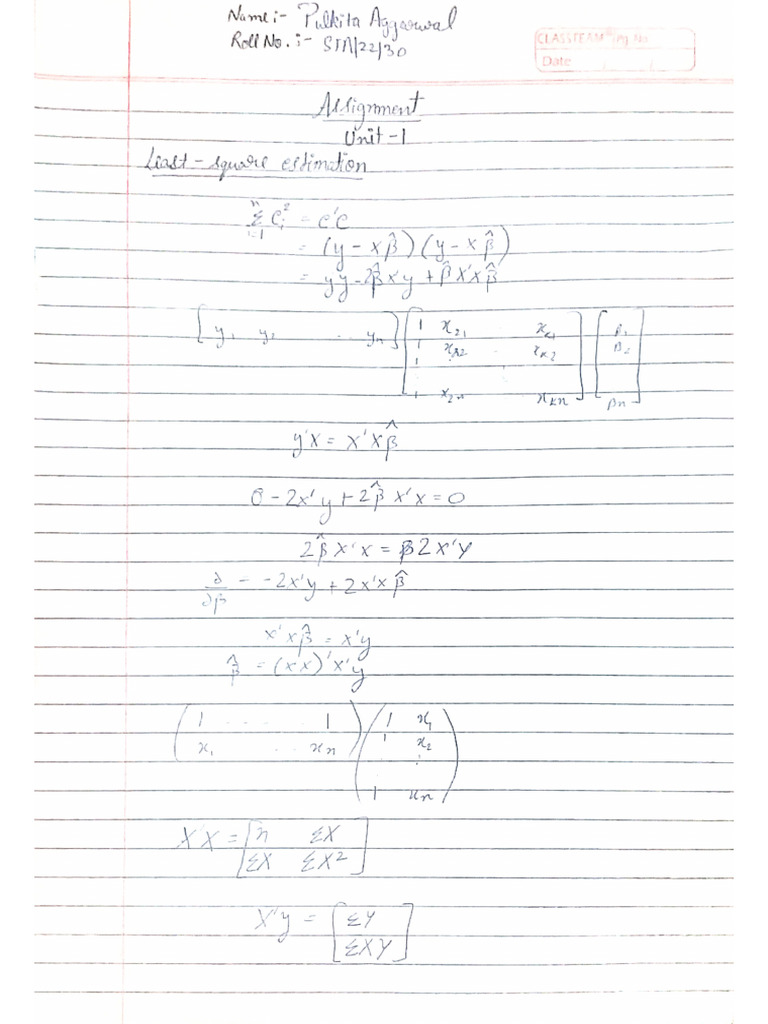 Name:- Pulkita Aggarwal
Roll No.:- STA/22/30
CLASSTEAM Pg. No.
Date
Assignment
Unit-1
Least-square estimation
n Σ i=1 e_i^2 = e'e
= (y - xβ̂)(y - xβ̂)
= y'y - 2β̂x'y + β̂x'xβ̂
[y1 y2 .. yn] [1 x21 xk1 [β1
1 x22 xk2 β2
1
1 x2n xkn] βn]
y'x = x'xβ̂
0 - 2x'y + 2β̂ x'x = 0
2β̂ x'x = 2x'y
∂/∂β̂ = -2x'y + 2x'xβ̂
x'xβ̂ = x'y
β̂ = (x'x)'x'y
(1 .... 1 (1 x1
x1 .. xn) 1 x2
:
1 xn)
X'X = [n ΣX
ΣX ΣX²]
X'y = [ΣY
ΣXY]